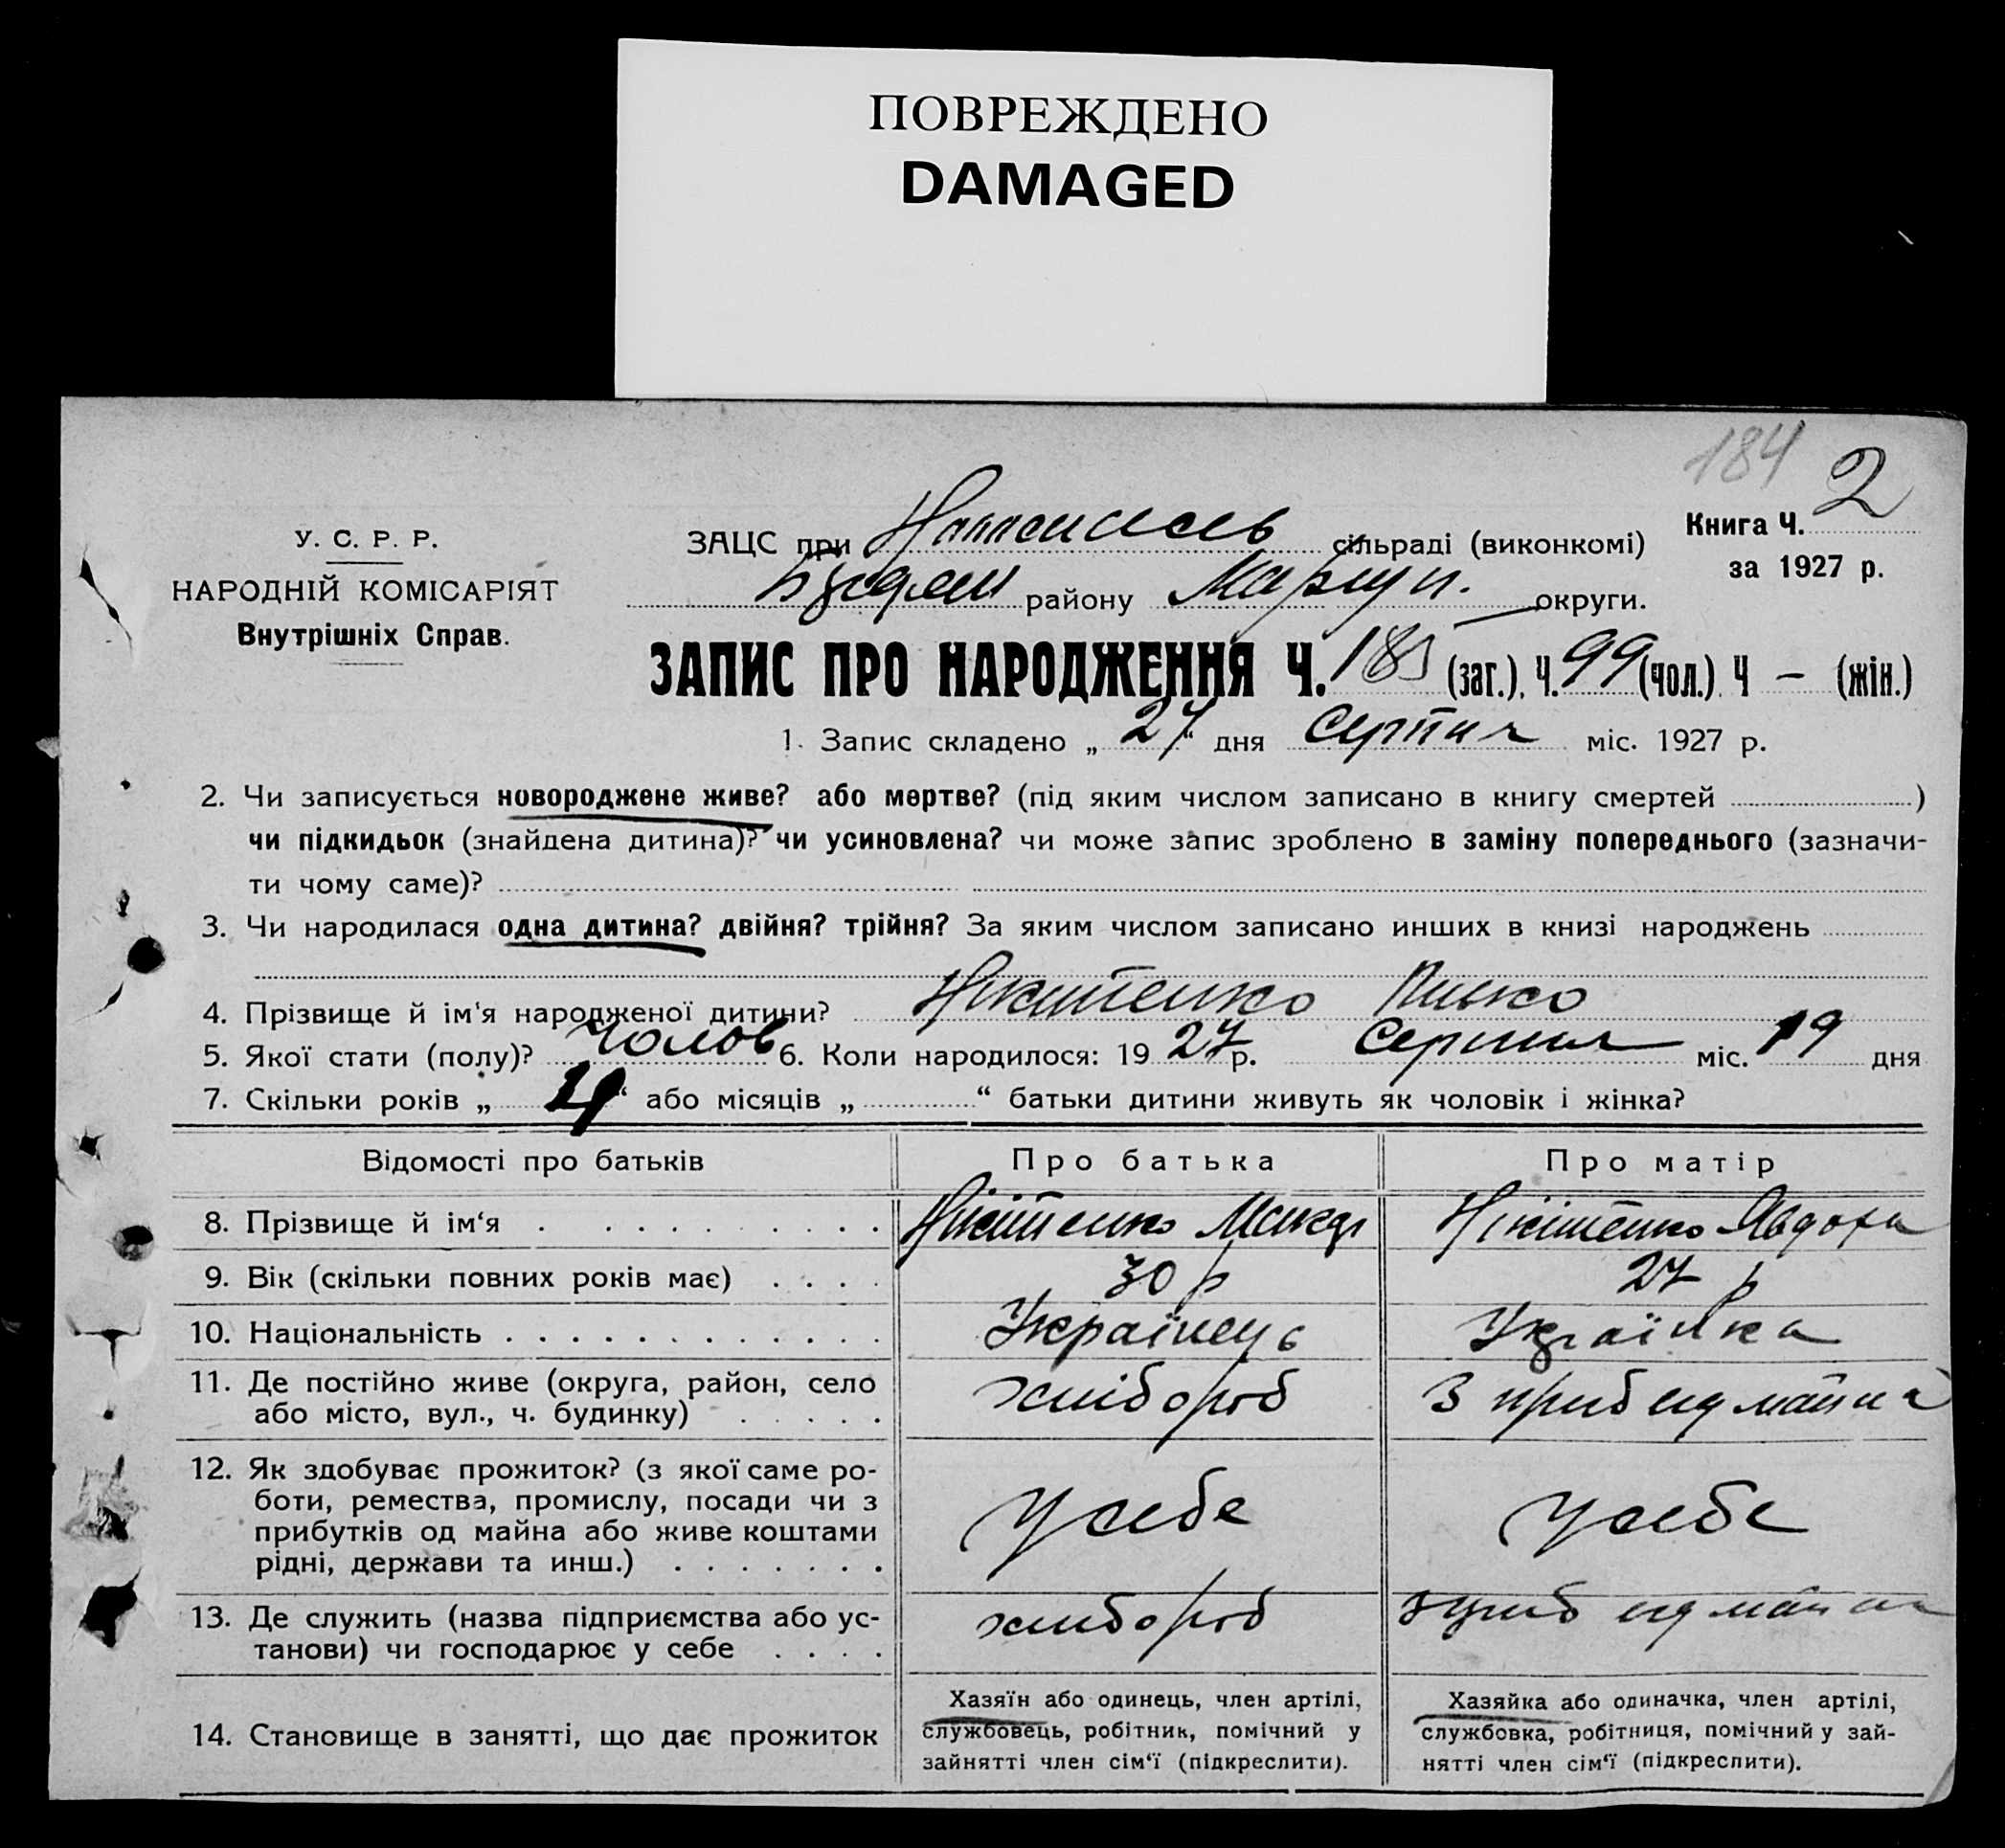 ПОВРЕЖДЕНО
DAMAGED
184
2
У. С. Р. Р.
НАРОДНІЙ КОМІСАРІЯТ
Внутрішніх Справ.
ЗАЦС при сільраді (виконкомі)
району Маріуп. округи.
Книга Ч.
за 1927 р.
ЗАПИС ПРО НАРОДЖЕННЯ Ч. (заг.), Ч. 99 (чол.) Ч — (жін.)
1. Запис складено „ 27 “ дня Серпня міс. 1927 р.
2. Чи записується новороджене живе? або мертве? (під яким числом записано в книгу смертей )
чи підкидьок (знайдена дитина)? чи усиновлена? чи може запис зроблено в заміну попереднього (зазначи-
ти чому саме)?
3. Чи народилася одна дитина? двійня? трійня? За яким числом записано инших в книзі народжень
4. Прізвище й ім‘я народженої дитини? Нікитенко
5. Якої стати (полу)? Чолов 6. Коли народилося: 19 27 р. Серпня міс. 19 дня
7. Скільки років „ “ або місяців „ “ батьки дитини живуть як чоловік і жінка?
Відомості про батьків Про батька Про матір
8. Прізвище й ім‘я Нікітенко Нікітенко Явдоха
9. Вік (скільки повних років має) 30 р 27 р
10. Національність Українець Українка
11. Де постійно живе (округа, район, село
або місто, вул., ч. будинку) хлібороб з приб від майна
12. Як здобуває прожиток? (з якої саме ро-
боти, ремества, промислу, посади чи з
прибутків од майна або живе коштами
рідні, держави та инш.) У себе У себе
13. Де служить (назва підприємства або ус-
танови) чи господарює у себе хлібороб від майна
14. Становище в занятті, що дає прожиток
Хазяїн або одинець, член артілі,
службовець, робітник, помічний у
зайнятті член сім‘ї (підкреслити).
Хазяйка або одиначка, член артілі,
службовка, робітниця, помічний у зай-
нятті член сім‘ї (підкреслити).